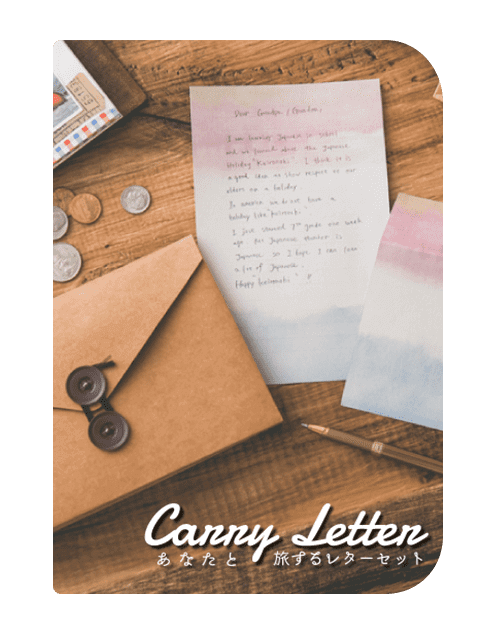 Dear Grandpa / Grandma,
I am learning Japanese in school
and we learned about the Japanese
Holiday "Keirouno
I think it is
a good idea to show respect to our
elders on a holiday.
In america we do not have a
holiday like
I just started 7th grade one week
ago. For Japanese
is
Japanese so I hope I can learn
a lot of Japanese.
Happy
Carry Letter
あなたと 旅するレターセット